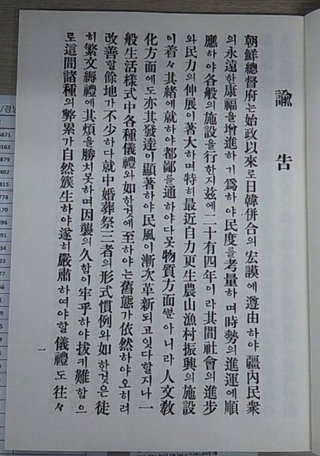 諭告
朝鮮總督府는始政以來로日韓併合의宏謨에遵由하야疆內民衆
의永遠한康福을增進하기爲하야民度를考量하며時勢의進運에順
應하야各般의施設을行한지玆에二十有四年이라其間社會의進步
와民力의伸展이著大하며特히最近自力更生農山漁村振興의施設
이着々其緖에就하야都鄙를通하야다못物質方面뿐아니라人文敎
化方面에도亦其發達이顯著하야民風이漸次革新되고잇다할지나一
般生活樣式中各種儀禮와如한것에至하야는舊態가依然하야오히려
改善할餘地가不少하다就中婚葬祭三者의形式慣例와如한것은徒
히繁文縟禮에其煩을勝치못하며因襲의久함이牢乎하야拔키難함으
로這間諸種의弊累가自然簇生하야遂히嚴肅하여야할儀禮도往々
一